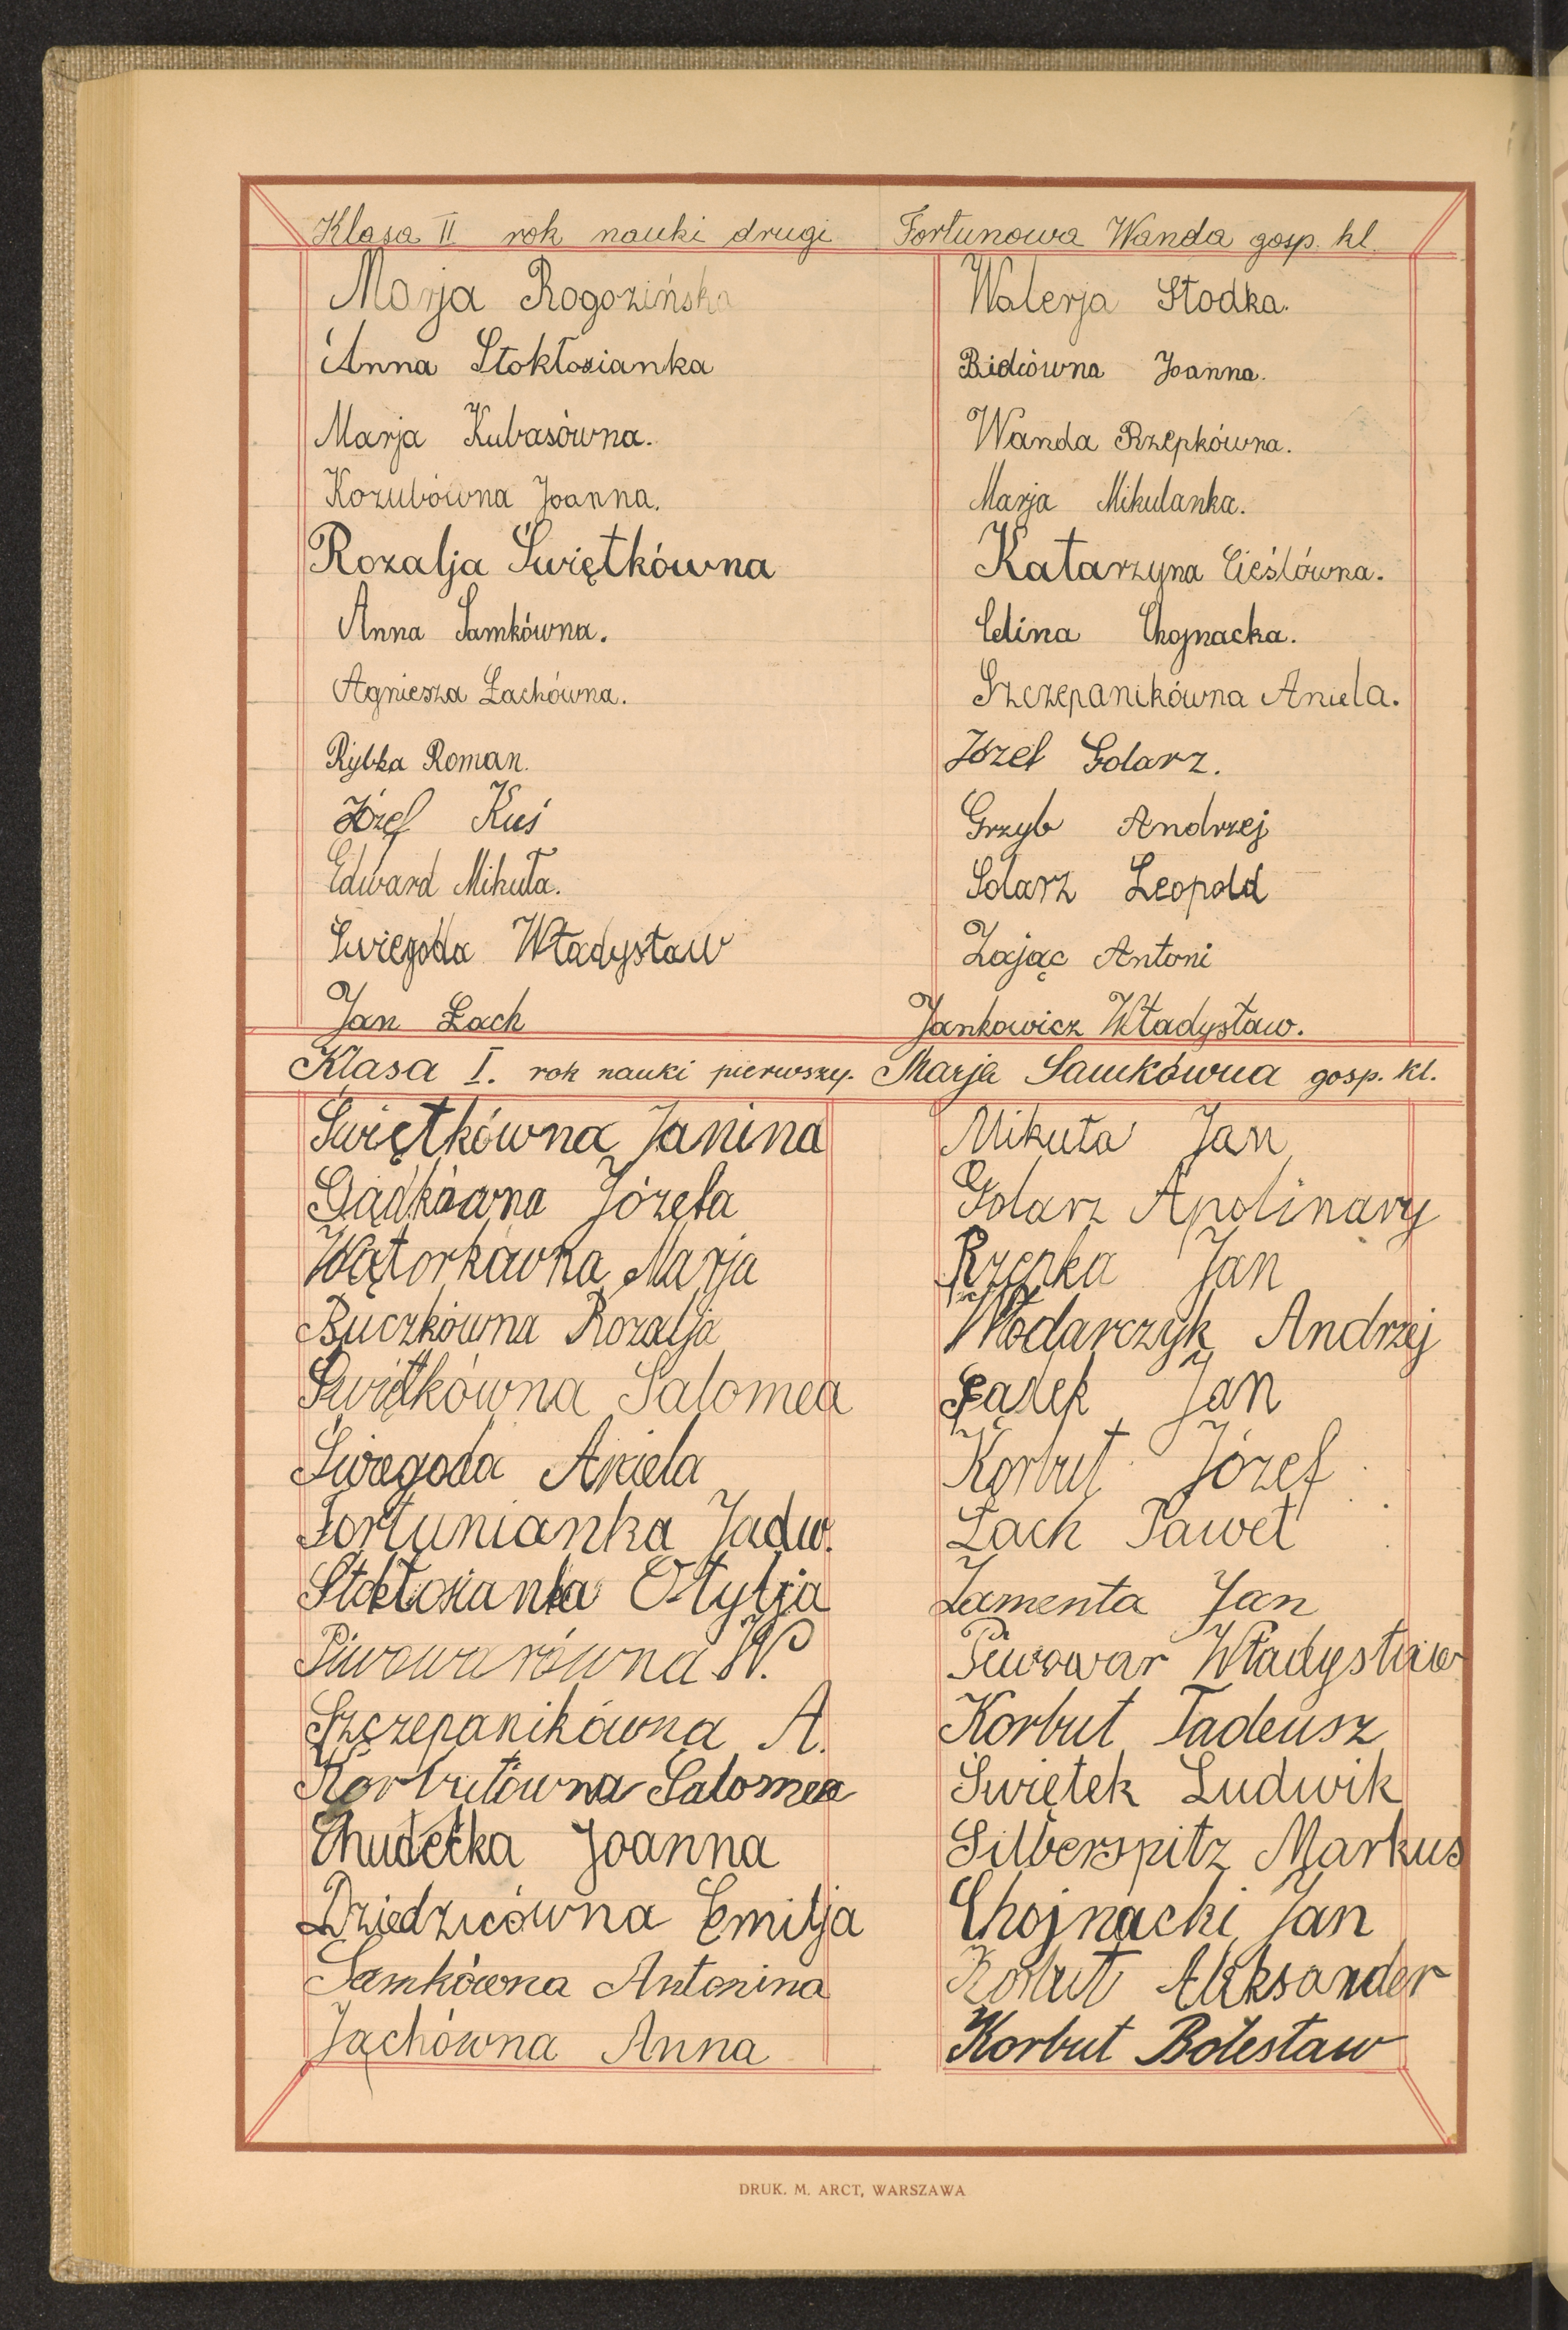 Klasa II rok nauki drugi Fortunowa Wanda gosp. kl.
Marja Rogozińska
Anna Stokłosianka
Marja Kubasówna.
Kozubówna Joanna.
Rozalja Świętkówna
Anna Samkówna.
Agniesza Łachówna.
Rybka Roman.
Józef Kuś
Edward Mikuła.
Świegoda Władysław
Jan Łach
Walerja Słodka.
Bidcówna Joanna.
Wanda Rzepkówna.
Marja Mikulanka.
Katarzyna Cieślówna.
Celina Chojnacka.
Szczepanikówna Aniela.
Józef Golarz.
Grzyb Andrzej
Solarz Leopold
Zając Antoni
Jankowicz Władysław.
Klasa I. rok nauki pierwszy. Marja Samkówna gosp. kl.
Świętkówna Janina
Gądkówna Józefa
Wątorkówna Marja
Buczkówna Rozalja
Świętkówna Salomea
Świegoda Aniela
Fortunianka Jadw.
Stokłosianka Otylja
Piwowarówna W.
Szczepanikówna A.
Korbutówna Salomea
Chudecka Joanna
Dziedzicówna Emilja
Samkówna Antonina
Jachówna Anna
Mikuła Jan
Golarz Apolinary
Rzepka Jan
Włodarczyk Andrzej
Jan
Korbut Józef
Łach Paweł
Lamenta Jan
Piwowar Władysław
Korbut Tadeusz
Świętek Ludwik
Silberspitz Markus
Chojnacki Jan
Korbut Aleksander
Korbut Bolesław
DRUK. M. ARCT, WARSZAWA